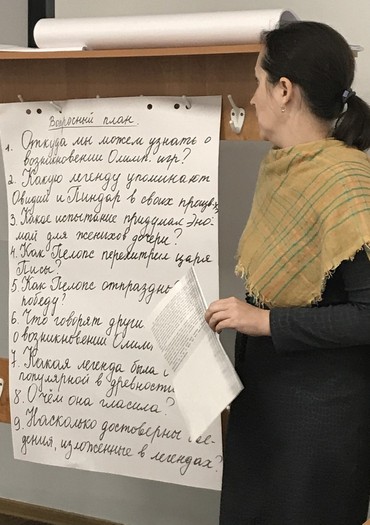 Вопросный план.
1. Откуда мы можем узнать о
возникновении Олимп. игр?
2. Какую легенду упоминают
Овидий и Пиндар в своих произвед
3. Какое испытание придумал Эно-
май для женихов дочери?
4. Как Пелопс перехитрил царя
Писы?
5. Как Пелопс отпраздно
победу?
6. Что говорят други
о возникновении Олим
7. Какая легенда была с
популярной в древности
8. О чём она гласила?
9. Насколько достоверны све-
дения, изложенные в легендах?